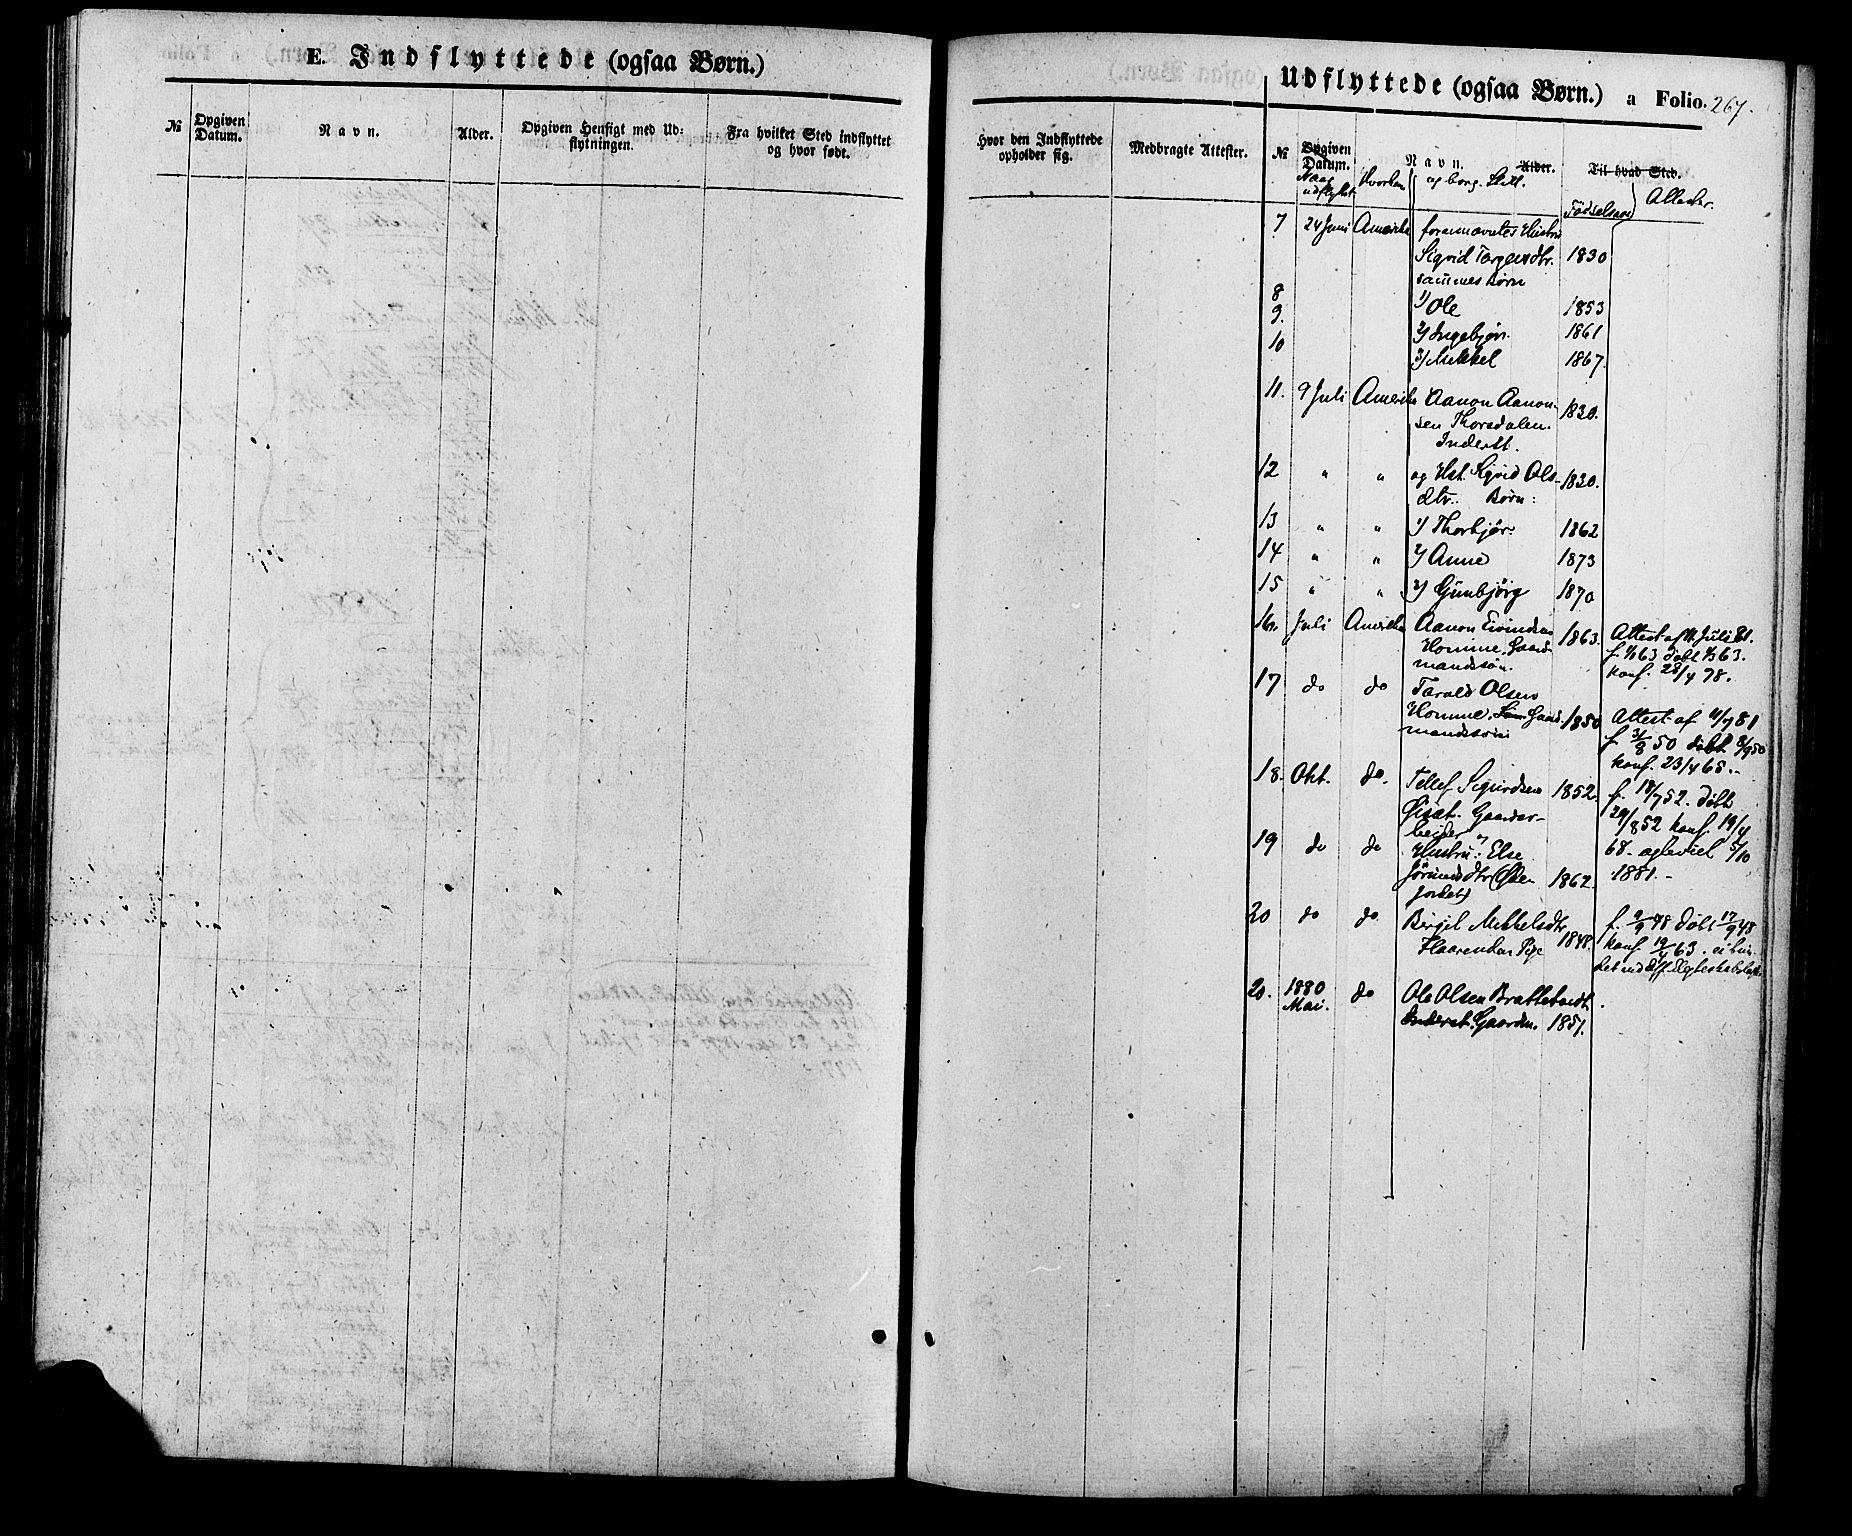 E. Indflyttede (ogsaa Børn.)
№
Opgiven Datum.
Navn.
Alder.
Opgiven Hensigt med Ud= flytningen.
Fra hvilket Sted indflyttet og hvor født.
Hvor den Indflyttede opholder sig.
Medbragte Attester.
Udflyttede (ogsaa Børn.) a Folio. 267.
№
Opgiven Datum.
Naar udflyttet
Hvorhen
Navn. Alder.
og borg. Still.
Til hvad Sted.
Fødselsaar
Attester.
7 24 Juni Amerika forannævntes Hustru
Sigrid Torgersdtr. 1830
sammes Børn
8 1) Ole 1853
9. 2) Ingebjør. 1861
10 3) Mikkel 1867.
11. 9 Juli Amerika Aanon Aanon-
sen Thorsdalen. 1830.
Inderst.
12 " " og Hst. Sigrid Ols- 1830.
dtr. Børn:
13 " " 1) Thorbjør. 1862
14 " " 2) Anne 1873
15 " " 3) Gunbjørg 1870
16. Juli Amerika Aanon Eivindsen 1863. Attest af Juli 81.
Homme, Gaard- f. 63 døbt 63.
mandssøn. konf. 28/4 78.
17 do do Tarald Olsen
Homme, Gaard- 1850 Attest af 11/7 81
mandssøn f. 31/8 50 døbt 8/9 50
konf. 23/4 65.
18. Okt. do. Tellef Sigurdsen 1852. f. 18/7 52. døbt
Gaardar- 29/8 52 konf. 19/4
beider og
19 do do Hustru: Else 68. egteviet 5/10
Jörundsdtr 1862. 1881.
20 do do Birgit Mikkelsdtr f. 9/9 48 døbt 17/9 48
Haarendan Pige 1848. konf. 19/4 63.
20. 1880 do Ole Olsen Brattebandt.
Mai. Inderst. Gaardm. 1851.